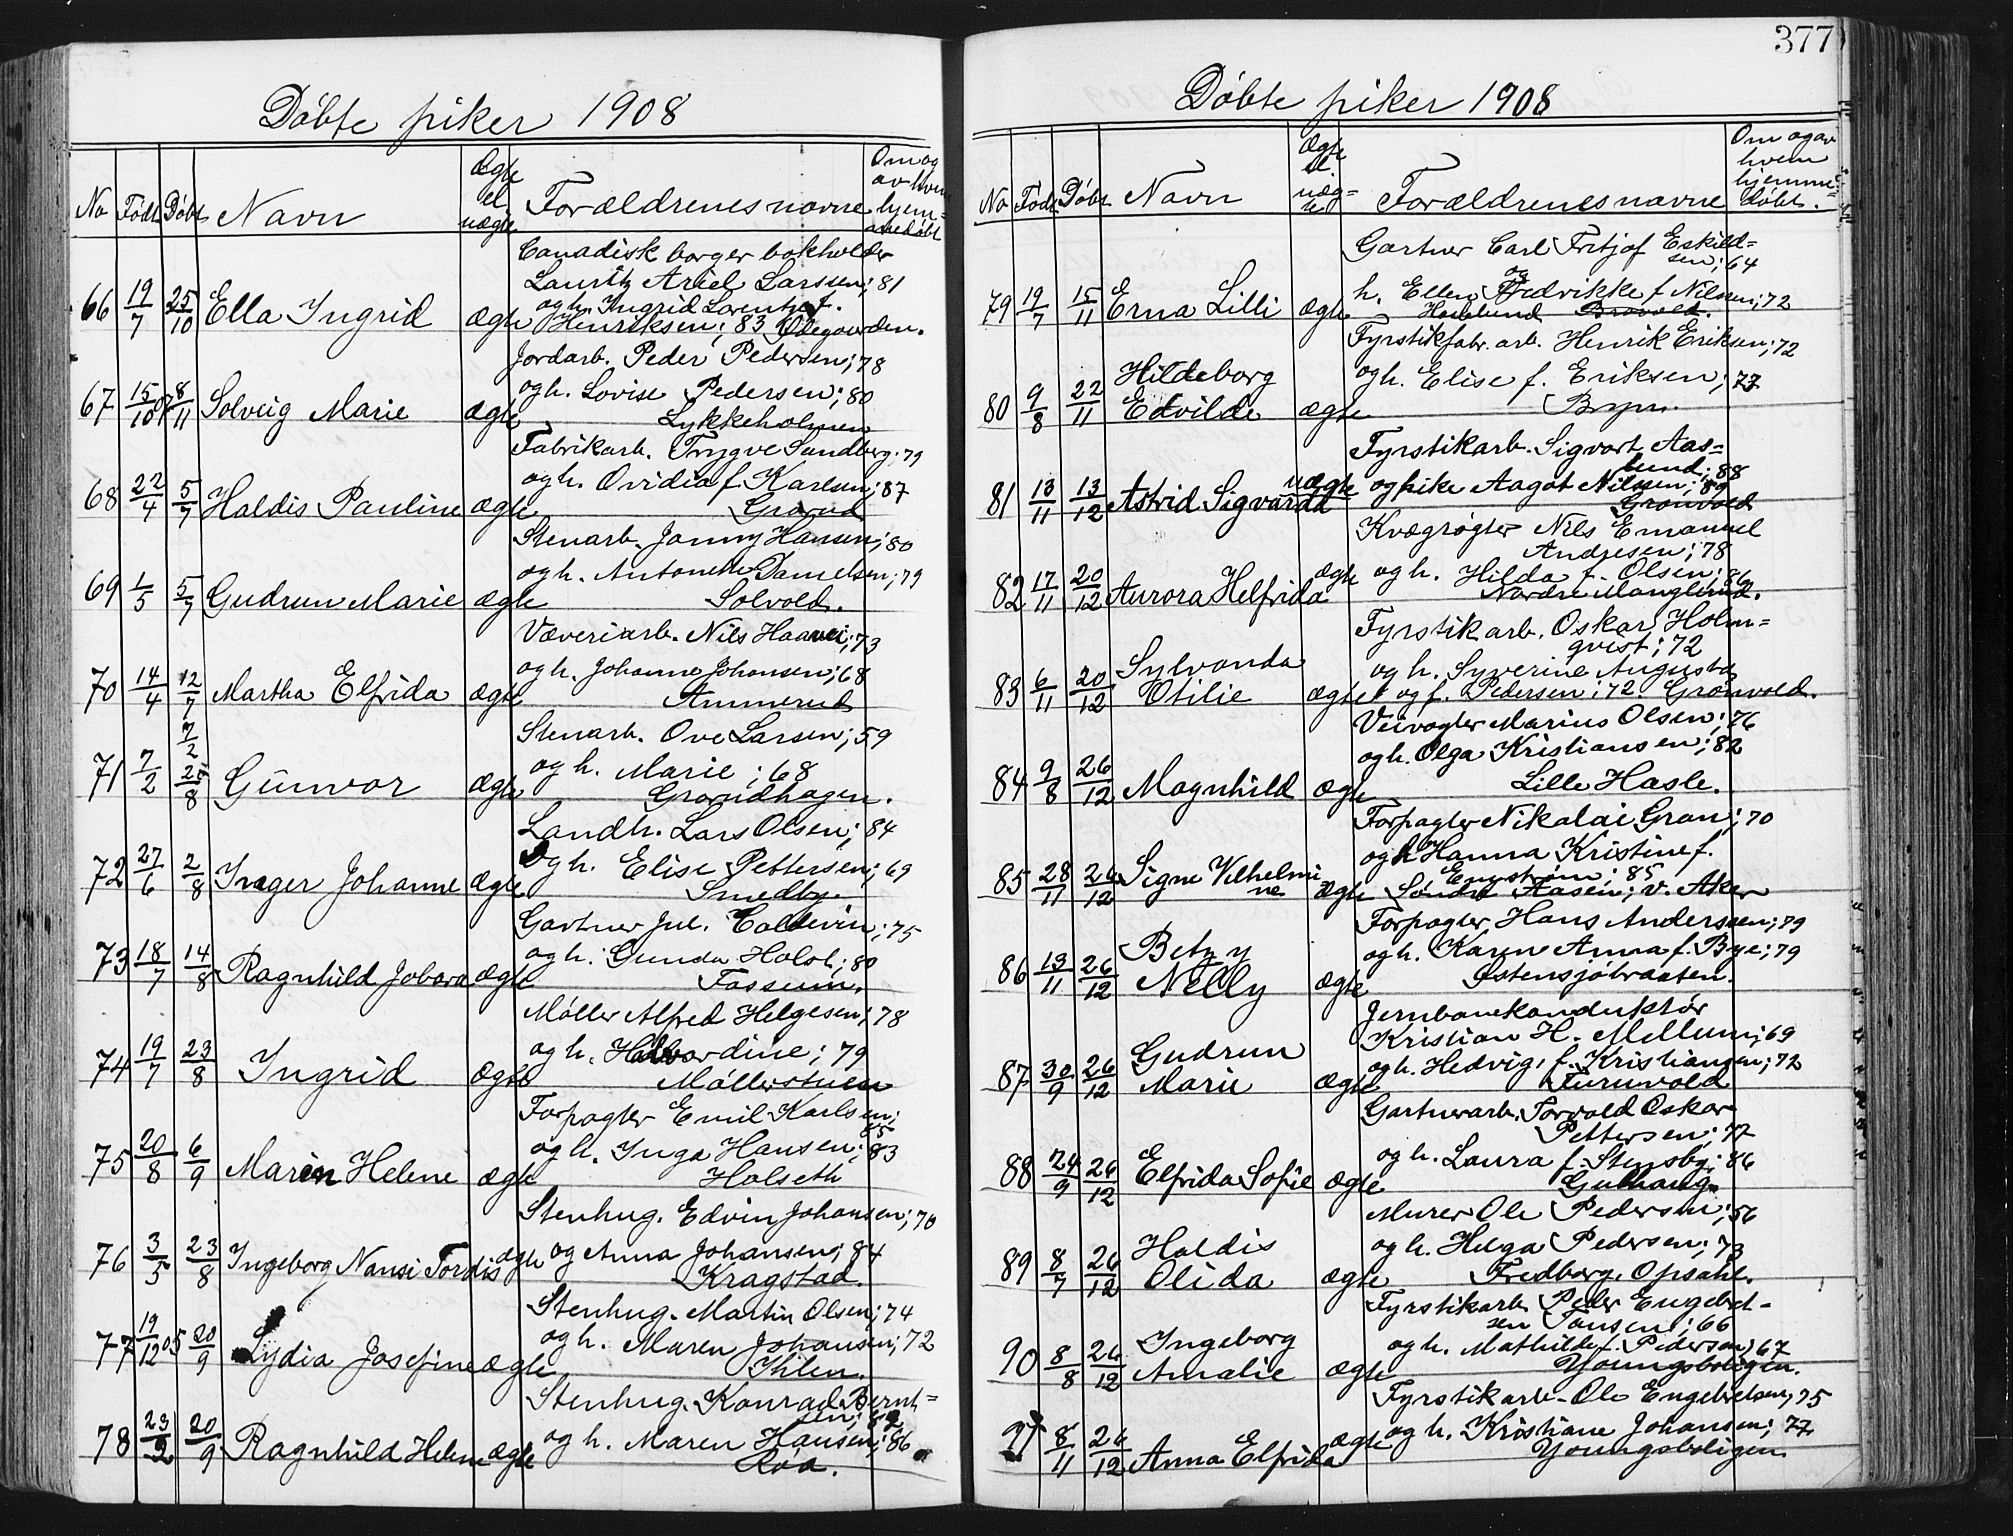 377
Døbte piker 1908
No Født Døbt Navn Ægte el. uægte Forældrenes navne Om og av hvem hjemmedøbt
Canadisk borger bokholder
Lauritz Ariel Larssen; 81
og h. Ingrid Lorentze f.
66 19/7 25/10 Ella Ingrid Ægte Henriksen; 83 Ødegaarden.
Jordarb. Peder Pedersen; 78
og h. Lovise Pedersen; 80
67 15/10 07 8/11 Solveig Marie ægte Lykkeholmen
Fabrikarb. Trygve Sundberg; 79
og h. Ovidia f. Karlsen; 87
68 22/4 5/7 Haldis Pauline ægte Grorud
Stenarb. Jonny Hansen; 80
og h. Antonette Danielsen; 79
69 1/5 5/7 Gudrun Marie ægte Solvold.
Væveriarb. Nils Haavei; 73
og h. Johanne Johansen; 68
70 14/4 12/7 Martha Elfrida ægte Ammerud
Stenarb. Ove Larsen; 59
7/2
og h. Marie; 68
71 7/2 2/8 Gunvor ægte Grorudhagen.
Landh. Lars Olsen; 84
og h. Elise Pettersen; 69
72 27/6 2/8 Inger Johanne Ægte Smedby.
Gartner Jul. Coldevin; 75
og h. Gunda Holst; 80
73 18/7 14/8 Ragnhild Jobara ægte Fossum.
Møller Alfred Helgesen; 78
og h. Halvordine; 79
74 19/7 23/8 Ingrid Ægte Møllerstuen
Forpagter Emil Karlsen;
85
og h. Inga Hansen; 83
75 20/8 6/9 Marin Helene ægte Holseth
Stenhug. Edvin Johansen; 76
og Anna Johansen; 84
76 3/5 23/8 Ingeborg Nansi Tordis ægte Kragstad.
Stenhug. Martin Olsen; 74
og h. Maren Johansen; 72
77 19/12 05 20/9 Lydia Josefine ægte Ihlen.
Stenhug. Konrad Bernt=
sen; 82
og h. Maren Hansen; 86
78 23/2 20/9 Ragnhild Helene ægte Roa.
Døbte piker 1908
No Født Døbt Navn Ægte el. uæg=te Forældrenes navne Om og av hvem hjemme=døbt.
Gartner Carl Fritjof Eskild=
sen; 64
og
h. Ellen Fredrikke f. Nilsen; 72
79 19/7 15/11 Erna Lilli ægte Haslund Brovold.
Fyrstikfabr. arb. Henrik Eriksen; 72
og h. Elise f. Eriksen; 77
80 9/8 22/11 Hildeborg Edvilde ægte Bryn.
Fyrstikarb. Sigvart Aas=
lund; 88
81 13/11 13/12 Astrid Sigvarda uægte og pike Aagot Nilssen; 89
Grønvold
Kvægrøgter Nils Emanuel
Andresen; 78
og h. Hilda f. Olsen; 86
82 17/11 20/12 Aurora Helfrida ægte Nordre Manglerud.
Fyrstikarb. Oskar Holm=
qvist; 72
og h. Syverine Augusta
83 6/11 20/12 Sylvanda Otilie ægte og f. Pedersen; 72. Grønvold.
Veivogter Marius Olsen; 76
og h. Olga Kristiansen; 82
84 9/8 26/12 Magnhild ægte Lille Hasle.
Forpagter Nikolai Gran; 70
og h. Hanna Kristine f.
Engstrøm; 85
85 28/11 26/12 Signe Vilhelmine ægte Søndre Aasen; v. Aker
Forpagter Hans Anderssen; 79
og h. Karen Anna f. Bye; 79
86 13/11 26/12 Betzy Nelly ægte Østensjøbraaten.
Jernbanekonduktør
Kristian H. Mellum; 69
og h. Hedvig, f. Kristiansen; 72
87 30/9 26/12 Gudrun Marie ægte Furuvold
Gartnerarb. Torvald Oskar
Pettersen; 77
og h. Laura f. Stensby; 86
88 24/9 26/12 Elfrida Sofie ægte Gulhaug.
Murer Ole Pedersen; 56
og h. Helga Pedersen; 73
89 8/7 26/12 Haldis Olida ægte Fredborg, Opsahl.
Fyrstikarb. Peder Engebret-
sen Tansen; 66
og h. Mathilde f. Pedersen; 67
90 8/8 26/12 Ingeborg Amalie ægte Youngsboligen.
Fyrstikarb. Ole Engebretsen; 75
og h. Kristiane Johansen; 77
91 8/11 26/12 Anna Elfrida ægte Youngsboligen